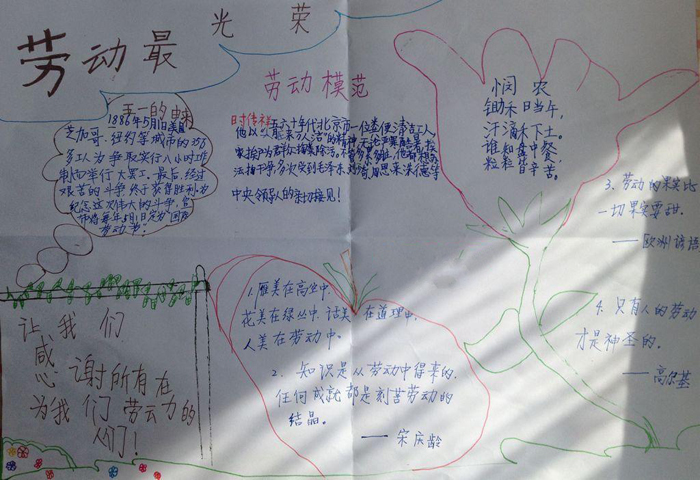 劳动最光荣
五一的由来
1886年5月1日美国
芝加哥、纽约等城市的35
多工人为争取实行八小时工作
制而举行大罢工,最后,经过
艰苦的斗争终于获得胜利,为
纪念这次伟大的斗争,宣
布将每年5月1日定为"国际
劳动节"
劳动模范
时传祥五六十年代北京市一位粪便清洁工人,
中央领导人的亲切接见!
悯农
锄禾日当午,
汗滴禾下土。
谁知盘中餐,
粒粒皆辛苦。
3、劳动的果实比
一切果实要甜。
——欧洲谚语
让我们
感谢所有在
为我们劳动的
人们!
1、雁美在高空中,
花美在绿丛中,话美在道理中,
人美在劳动中。
2、知识是从劳动中得来的,
任何成就都是刻苦劳动的
结晶。
——宋庆龄
4、只有人的劳动
才是神圣的。
——高尔基